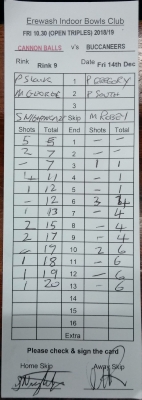 Erewash Indoor Bowls Club
FRI 10.30 (OPEN TRIPLES) 2018/19
CANNON BALLS v's BUCCANEERS
Rink Rink 9 Date Fri 14th Dec
1 P GREGORY
2 P SOUTH
3
Skip M ROBEY
Shots Total END Shots Total
5 5 1 - -
2 7 2 - -
- 7 3 1 1
4 11 4 - 1
1 12 5 - 1
- 12 6 3 4
1 13 7 - 4
2 15 8 - 4
2 17 9 - 4
- 17 10 2 6
1 18 11 - 6
1 19 12 - 6
1 20 13 - 6
14
15
16
Extra
Please check & sign the card
Home Skip Away Skip